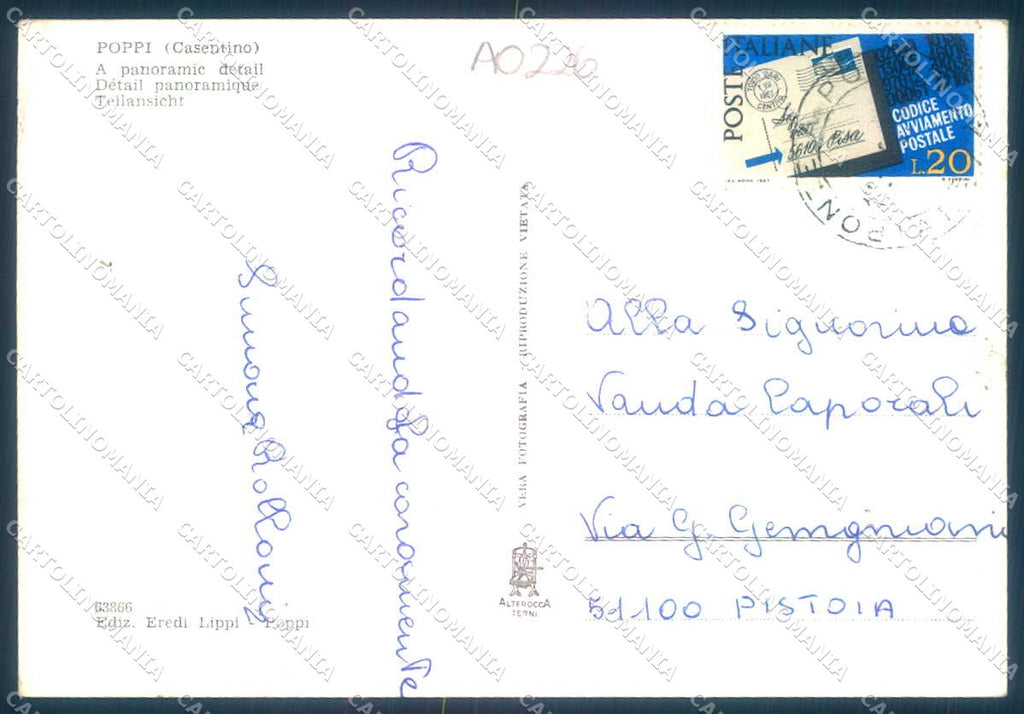 POPPI (Casentino)
A panoramic detail
Détail panoramique
Teilansicht
A0220
POSTE ITALIANE
CODICE
AVVIAMENTO
POSTALE
56100 Pisa
L.20
Ricordandola caramente
Simona
VERA FOTOGRAFIA - RIPRODUZIONE VIETATA
Alla Signorina
Vanda Caporali
Via G. Gemignani
51100 PISTOIA
ALTEROCCA
TERNI
63866
Ediz. Eredi Lippi - Poppi
CARTOLINOMANIA